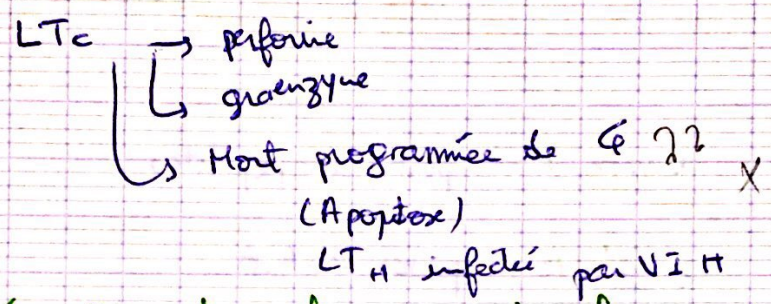 LTc → perforine
↳ graenzyme
↳ Mort programmée de
(Apoptose)
LTH infecté par VIH